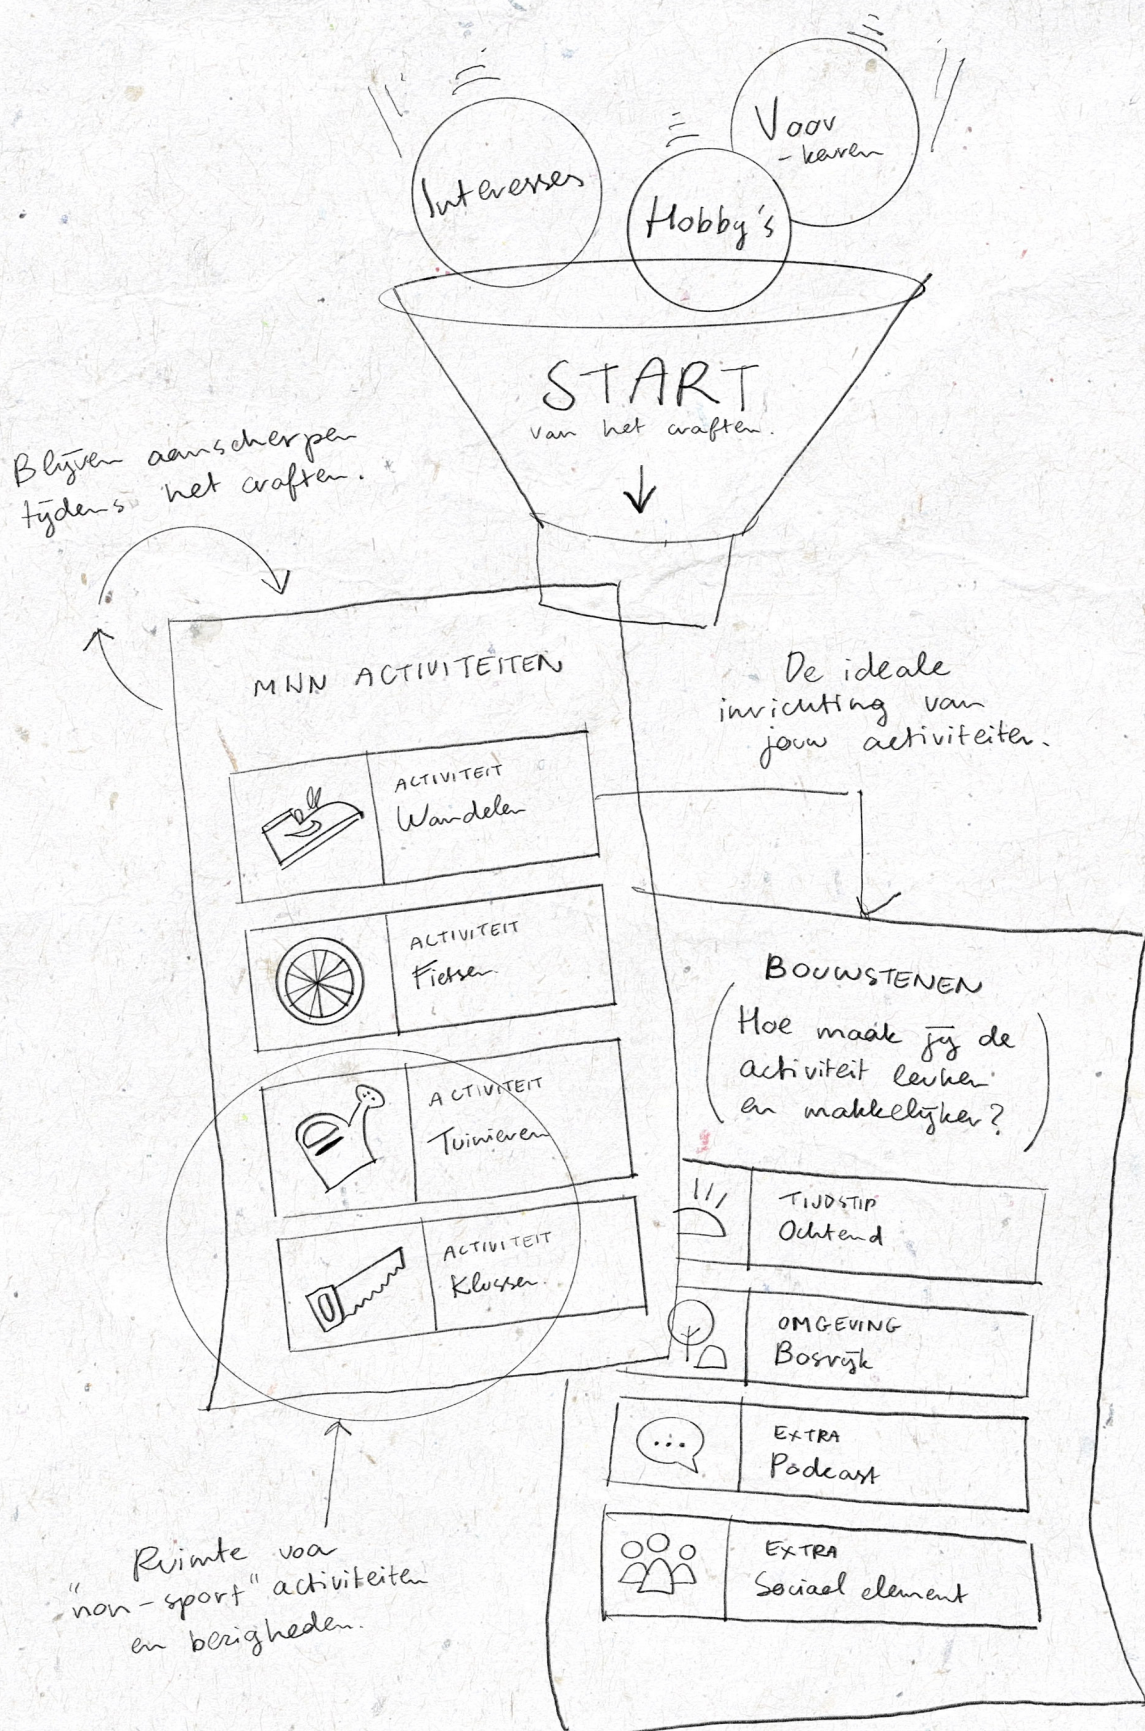 Interesses
Voor
-keuren
Hobby's
START
van het craften.
Blijven aanscherpen
tijdens het craften.
MIJN ACTIVITEITEN
ACTIVITEIT
Wandelen
ACTIVITEIT
Fietsen
ACTIVITEIT
Tuinieren
ACTIVITEIT
Klussen
De ideale
inrichting van
jouw activiteiten.
BOUWSTENEN
(Hoe maak jij de
activiteit leuker
en makkelijker?)
TIJDSTIP
Ochtend
OMGEVING
Bosrijk
EXTRA
Podcast
EXTRA
Sociaal element
Ruimte voor
"non-sport" activiteiten
en bezigheden.